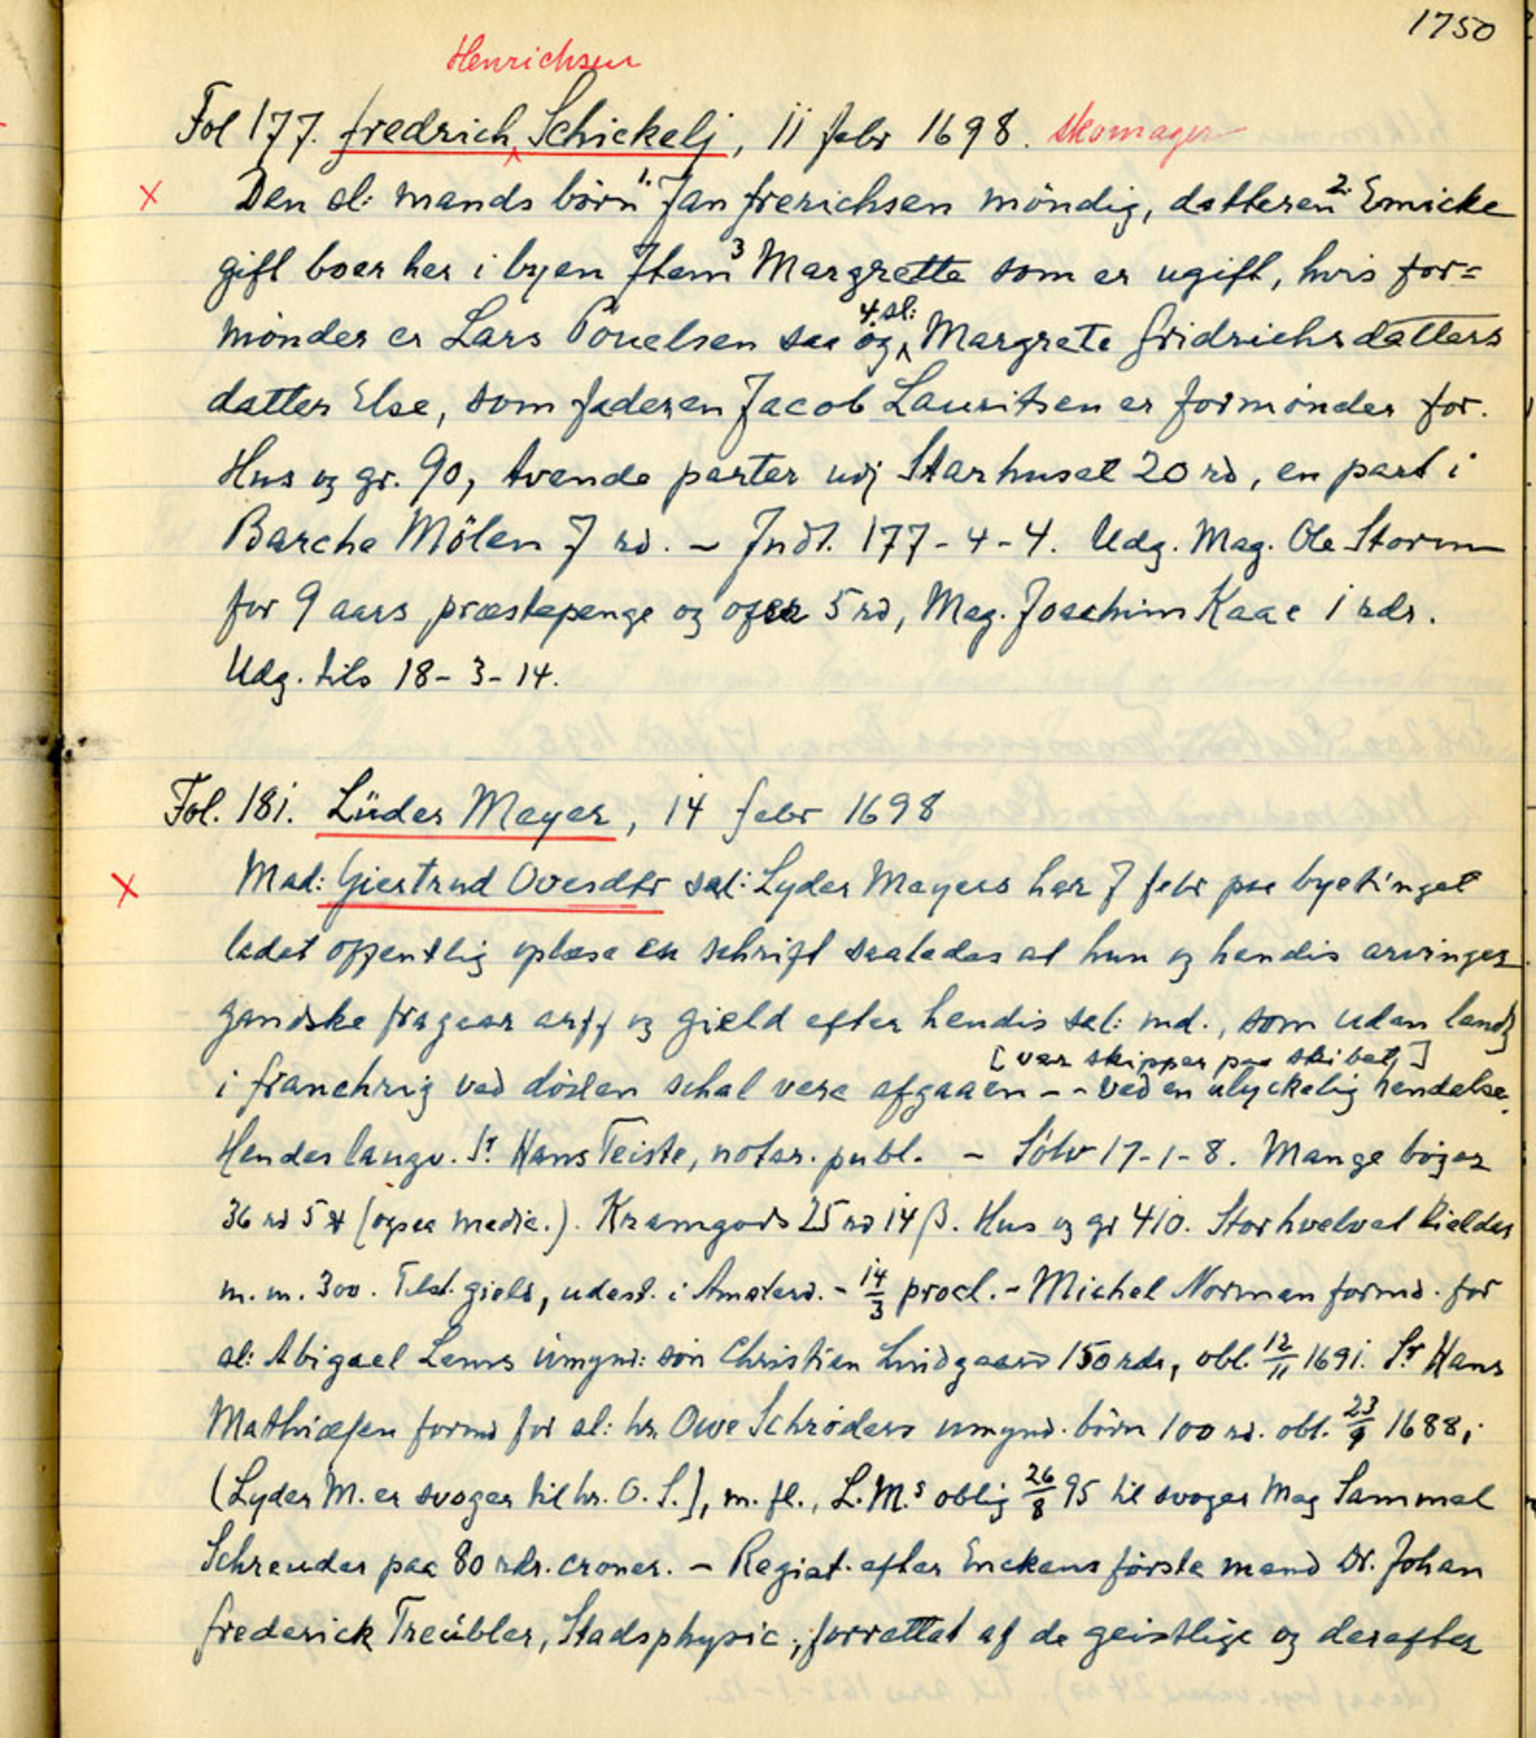 1750
Henrichsen
Fol 177. fredrich Schickelj, 11 febr 1698. skomager
Den sl: mands börn 1. Jan frerichsen möndig, datteren 2. Emicke
gift boer her i byen Item 3 Margrette som er ugift, hvis for=
mönder er Lars Pouelsen saa og 4. sl: Margrete fridrichsdatters
datter Else, som faderen Jacob Lauritsen er formönder for.
Hus og gr. 90, tvende parter udj Starhuset 20 rd, en part i
Barche Mölen 7 rd. - Indt. 177-4-4. Udg. Mag. Ole Storm
for 9 aars præstepenge og ofer 5 rd, Mag. Joachim Kaae 1 rdr.
Udg. tils 18-3-14.
Fol. 181. Lüder Meyer, 14 febr 1698
Mad: Giertrud Ovesdtr sal: Lyder Meyers har 7 febr paa byetinget
ladet offentlig oplæse en schrift saaledes at hun og hendis arvinger
gandske fragaar arff og gield efter hendis sal: md., som uden landz
i franchrig ved döden schal vere afgaaen - - ved en ulyckelig hendelse.
[var skipper paa skibet]
Hendes laugv. Sr. Hans Teiste, notar. publ. - Sölv 17-1-8. Mange böger
36 rd 5 (ogsaa medic.). Kramgods 25 rd 14 ß. Hus og gr 410. Stor hvelvet kielder
m.m. 300. Tilst. gield, udest. i Amsterd. - 14/3 procl. - Michel Norman formd. for
sl: Abigael Lems umynd: sön Christian Lindgaard 150 rdr, obl. 12/11 1691. Sr Hans
Mathiæsen formd for sl: hr. Owe Schröders umynd. börn 100 rd. obl. 23/9 1688;
(Lyder M. er svoger til hr. O. S.), m. fl., L.M.s oblig 26/8 95 til svoger Mag Sammel
Schreuder paa 80 rdr. croner. - Regist. efter Enckens förste mand Dr. Johan
frederick Treübler, Stadsphysic., forrettet af de geistlige og derefter